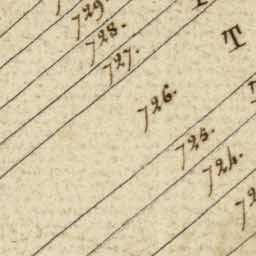 729.
728.
727.
T
726.
725.
724.